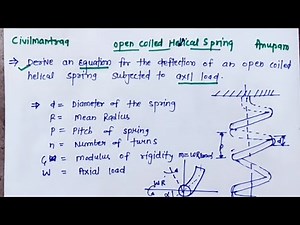 Civilmantraa open coiled Helical Spring Anupam
⇒ Derive an equation for the deflection of an open coiled
helical spring subjected to axil load.
⇒ d = Diameter of the spring
R = Mean Radius
P = Pitch of spring
n = Number of turns
= modulus of rigidity
W = Axial load
WR
α
P